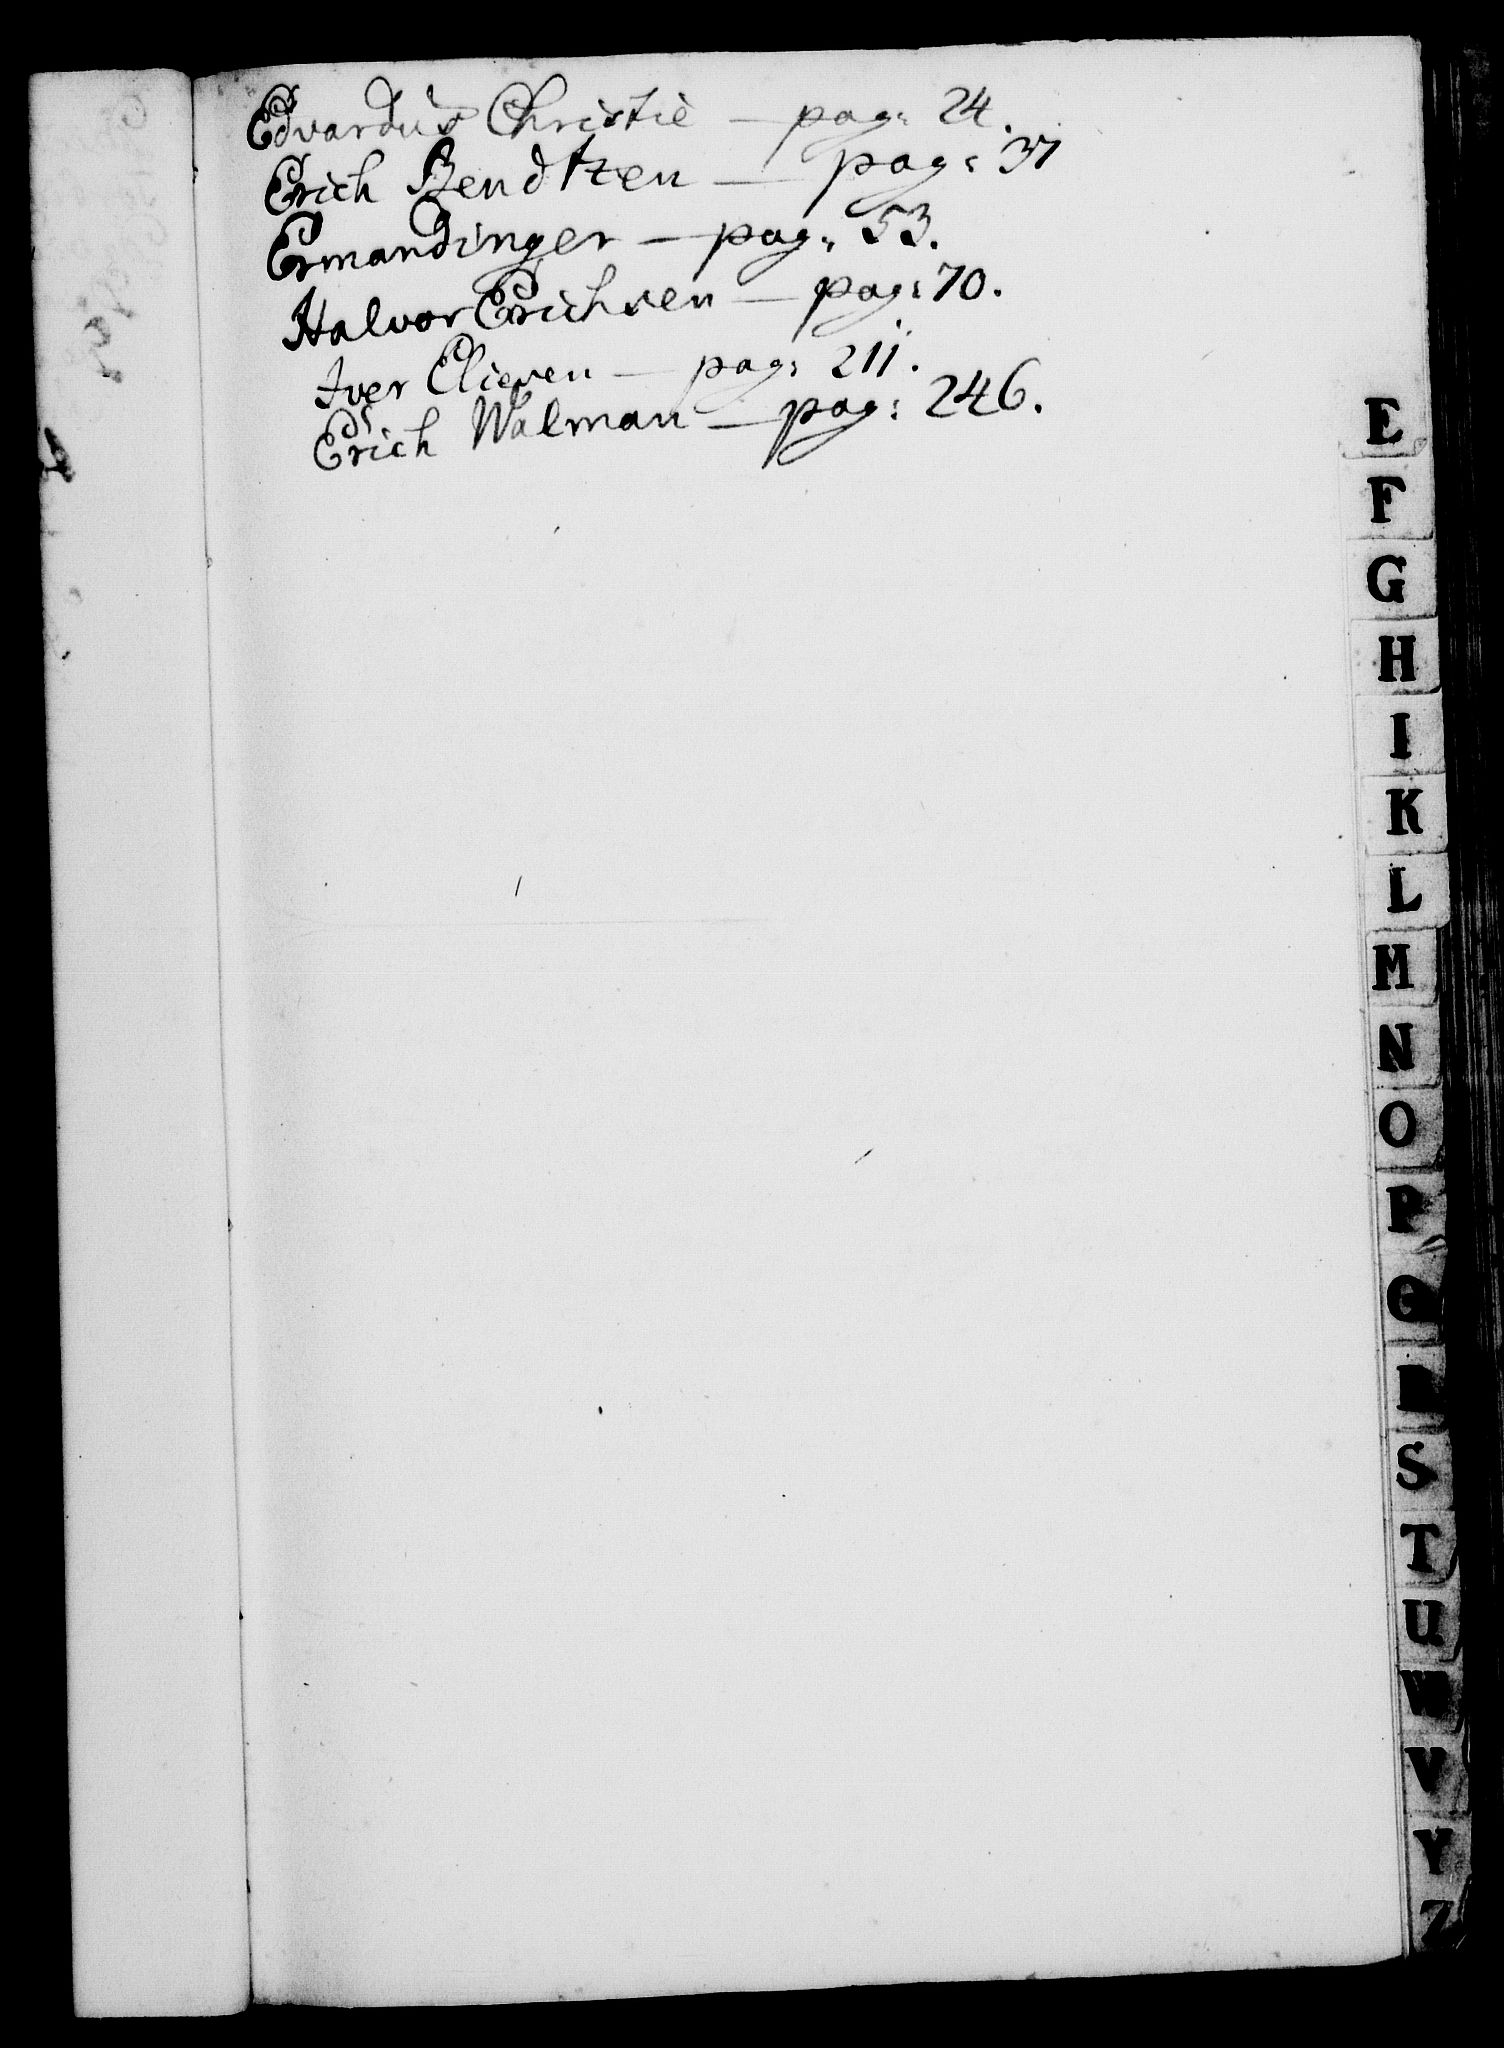 Edvardus Christie — pag: 24.
Erich Bendtzen — pag: 37
Ermandinger — pag: 53.
Halvor Erichsen — pag: 70.
Iver Eliesen — pag: 211.
Erich Walman — pag: 246.
E
F
G
H
I
K
L
M
N
O
P
Q
R
S
T
U
W
V
Y
Z